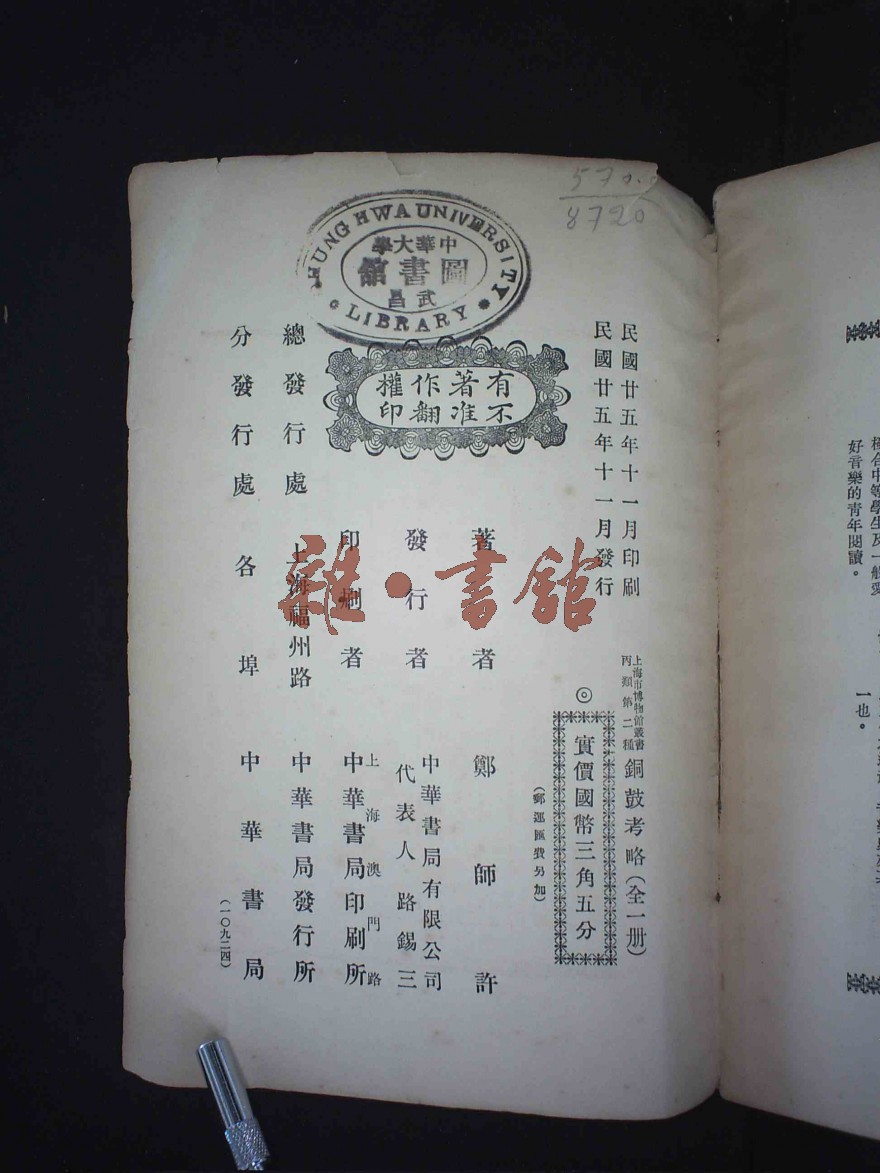 570.
8720
CHUNG HWA UNIVERSITY
中華大學
圖書館
武昌
LIBRARY
有著作權
不准翻印
民國廿五年十一月印刷
民國廿五年十一月發行
上海市博物館叢書
丙類第二種
銅鼓考略(全一册)
◎
實價國幣三角五分
(郵運匯費另加)
著者 鄭師許
發行者 中華書局有限公司
代表人 路錫三
印刷者 上海澳門路
中華書局印刷所
總發行處 上海福州路 中華書局發行所
分發行處 各埠 中華書局
(一〇九二四)
雜·書館
好音樂的青年閱讀。
一也。